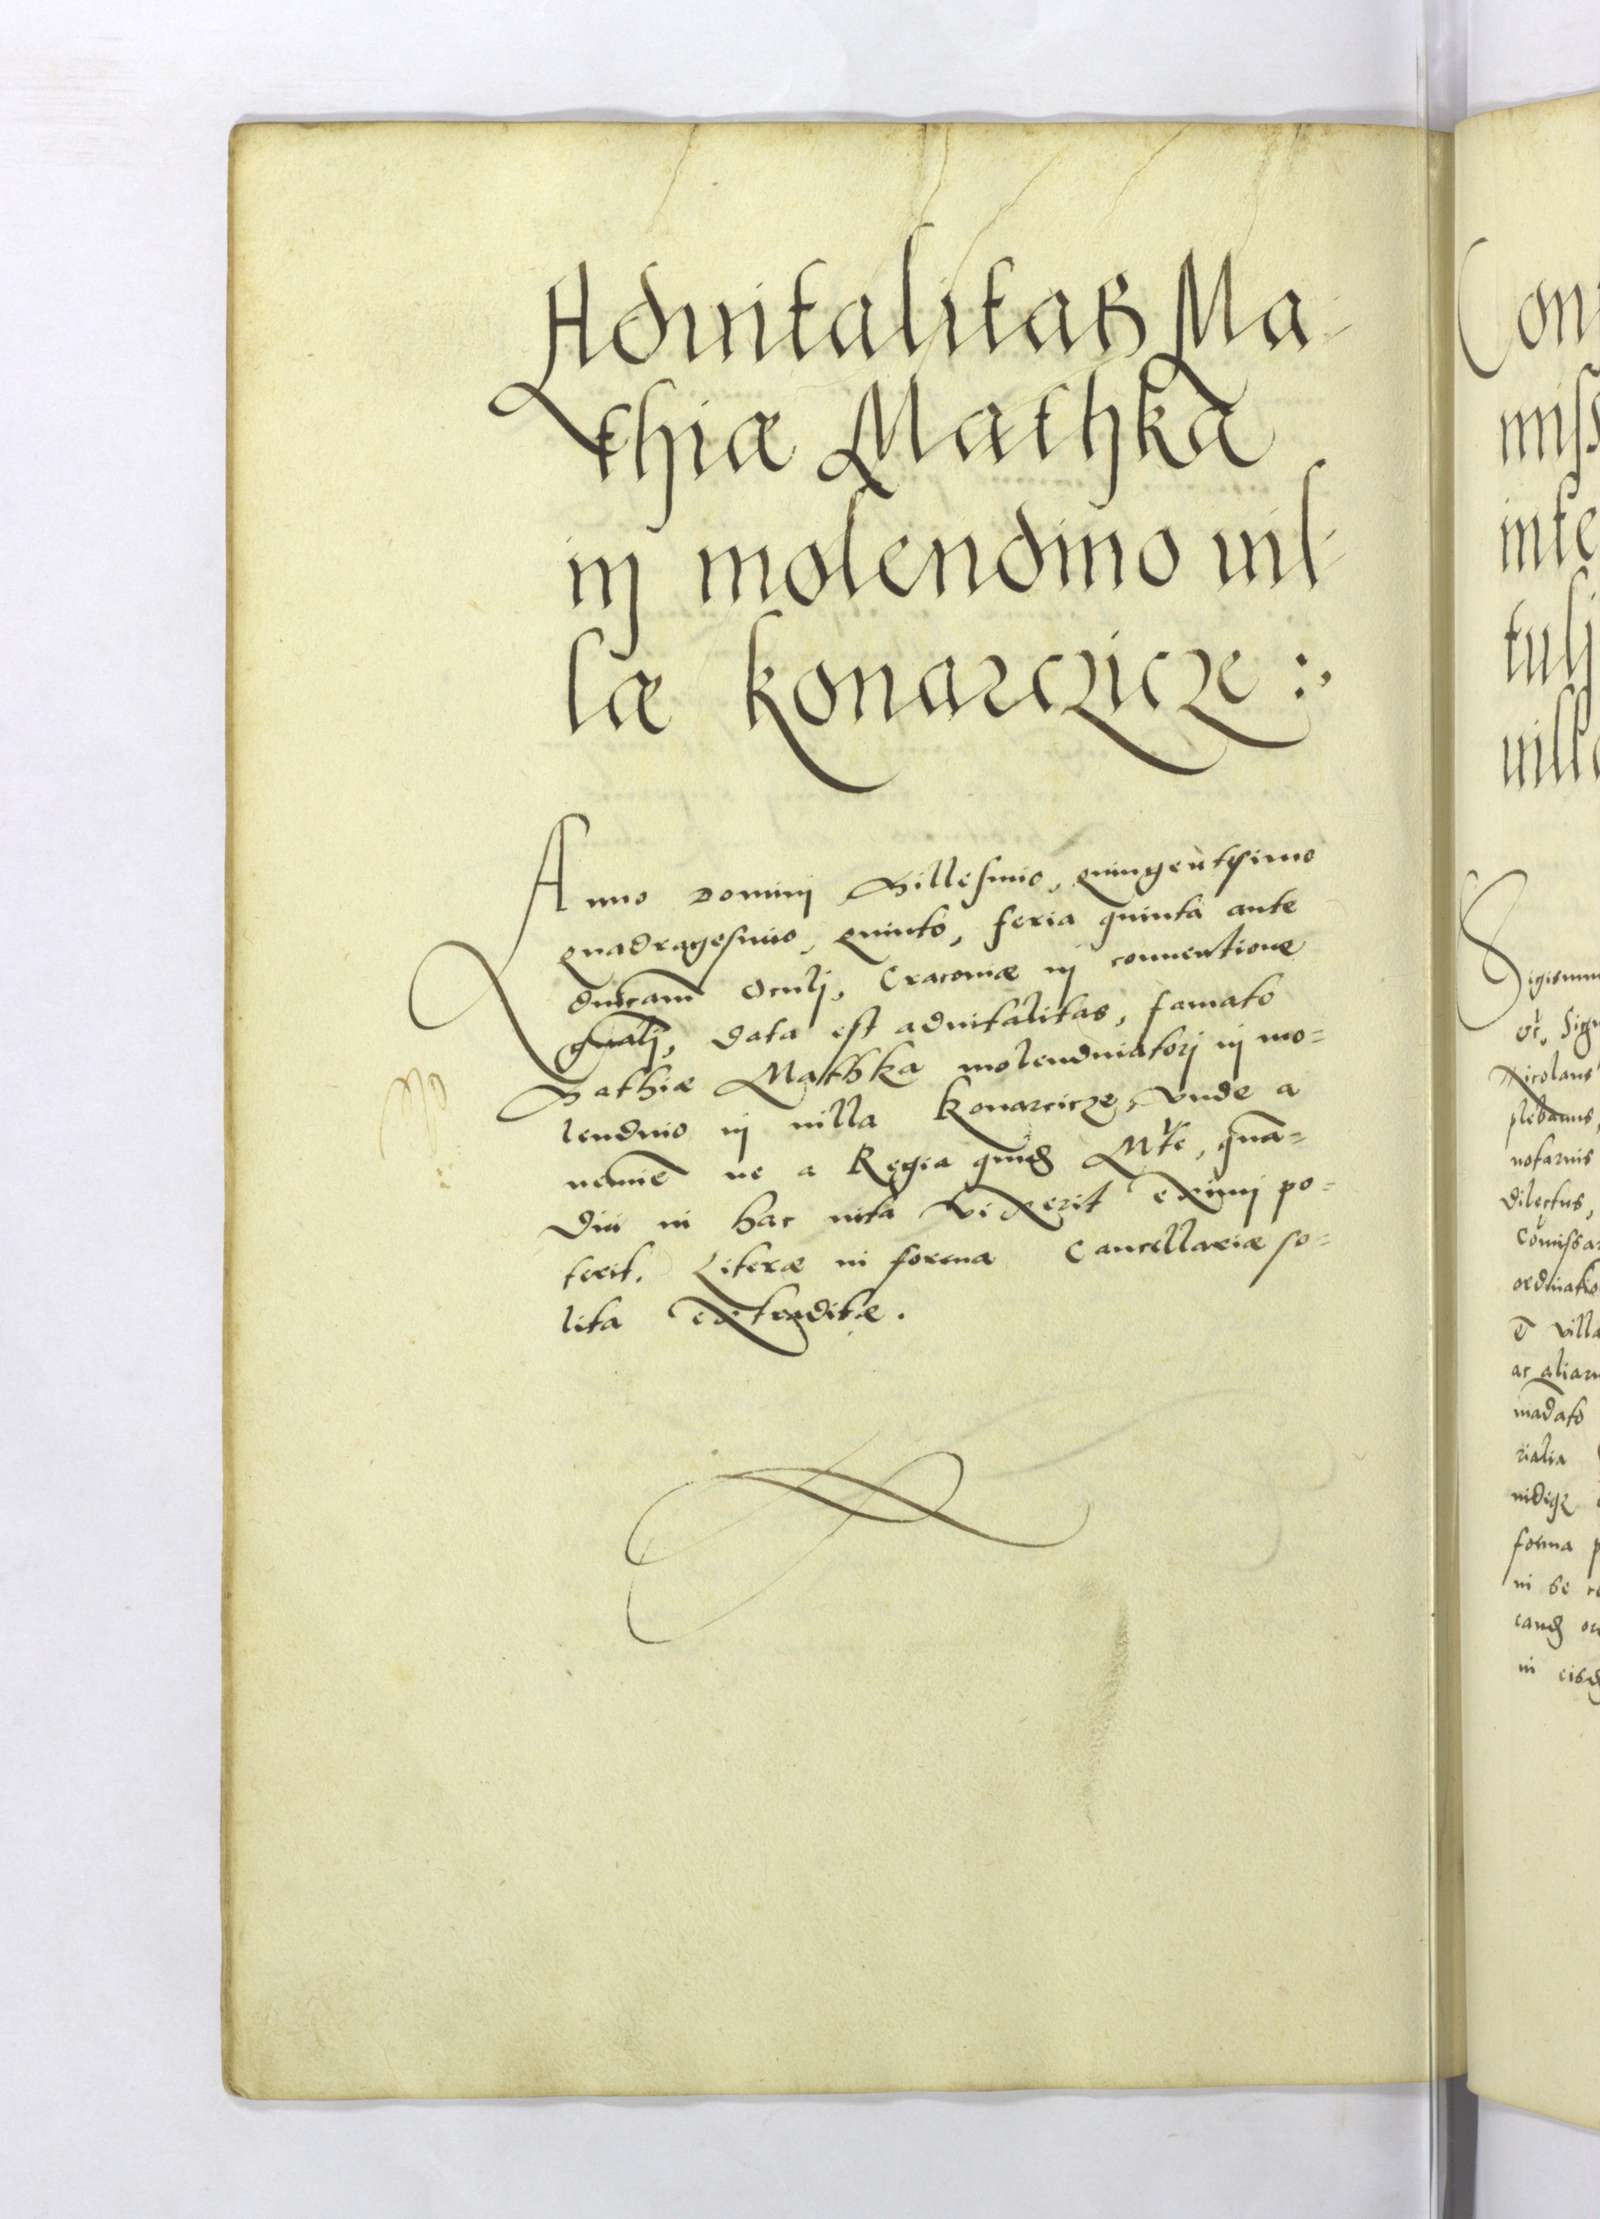 Aduitalitas Ma-
thiæ Mathka
in molendino uil-
læ Konarczicze :,
Anno Dominj Millesimo, quingentesimo
quadragesimo, quinto, feria quinta ante
dnicam Oculj, Cracouiæ in conuentione
gnalj, data est aduitalitas, famato
Mathiæ Mathka molendinatorj in mo=
lendino in uilla Konarcicze, Vnde a
nemie ne a Regia quidē Mte, qua=
diu in hac uita Vixerit eximj po=
terit. Literæ in forma Cancellariæ so=
lita extraditæ.
Con
miss
inte
tulj
uilla
Sigismun
Nicolaus
plebanus,
notarius
dilectus,
Comissar
ordinatio
villa
ac aliaru
madato
rialia
forma p
in se
in